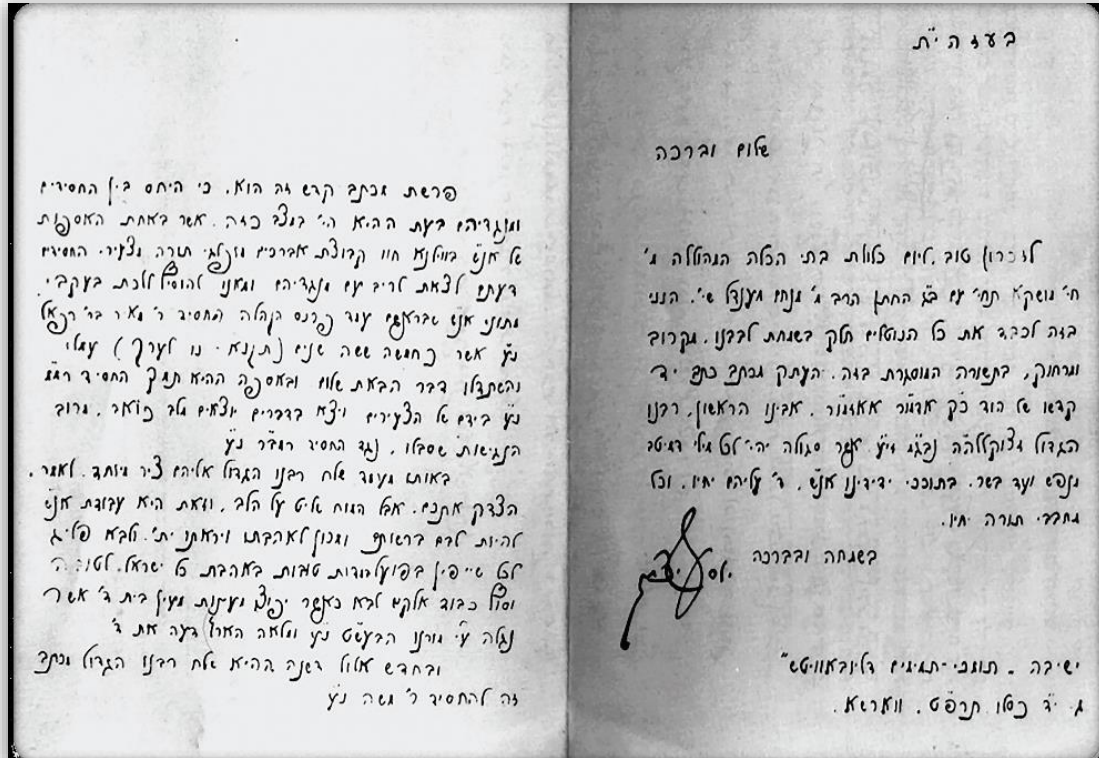 בעזהי"ת
שלום וברכה
לזכרון טוב. ליום כלולת בתי הכלה המהוללה מ'
חי' מושקא תחי' עם ב"ג החתן הרב מ' מנחם מענדל שי'. הנני
בזה לכבד את כל הנוטלים חלק בשמחת לבבנו, מקרוב
ומרחוק, בתשורה המוסגרת בזה. העתק מכתב כתב יד
קדשו של הוד כ"ק אדמו"ר אאזמו"ר, אבינו הראשון, רבנו
הגדול זצוקללה"ה נבג"מ זי"ע. אשר סגולה יהי' לכל מילי דמיטב
מנפש ועד בשר. בתוככי ידידינו אנ"ש, ד' עליהם יחיו, וכל
מחבבי תורה יחיו.
בשמחה ובברכה
יוסף יצחק
ישיבה - תומכי-תמימים דליובאוויטש"
ג. י"ד כסלו תרפ"ט. ווארשא.
פרשת מכתב קדש זה הוא. כי היחס בין החסידים
ומנגדיהם בעת ההיא הי' במצב כזה. אשר באחת האספות
של אנ"ש בווילנא חוו קבוצת אברכים מופלגי תורה מצעירי החסידים
דעתם לצאת לריב עם מנגדיהם ומאנו להוסיף ללכת בעקבי
מתוני אנ"ש שבראשם עמד פרנס הקהלה החסיד ר' מאיר בר' רפאל
נ"ע אשר כחמשה ששה שנים (תקנ"א - נו לערך) עמלו
והשתדלו דבר הבאת שלום ובאספה ההיא תמך החסיד רמ"מ
נ"ע בידם של הצעירים ויצא בדברים יוצאים מלב כואב, מרוב
הנגישות שסבלו, נגד החסיד רמב"ר נ"ע
באותו מעמד שלח רבנו הגדול אליהם ציר מיוחד. לאמר,
הצדק אתכם. אבל המוח שליט על הלב, וזאת היא עבודת אנ"ש
להיות לבם ברשותם ומכוון לאהבתו ויראתו ית'. ולבא פליג
לכל שייפין בפועל ומדות טובות באהבת כל ישראל. לטובה
וסוף כבוד אלקים לבא כאשר יפוצו מעינות מעין בית ד' אשר
נגלה ע"י מורנו הבעש"ט נ"ע ומלאה הארץ דעה את ד'
ובחדש אלול דשנה ההיא שלח רבנו הגדול מכתב
זה להחסיד ר' משה נ"ע